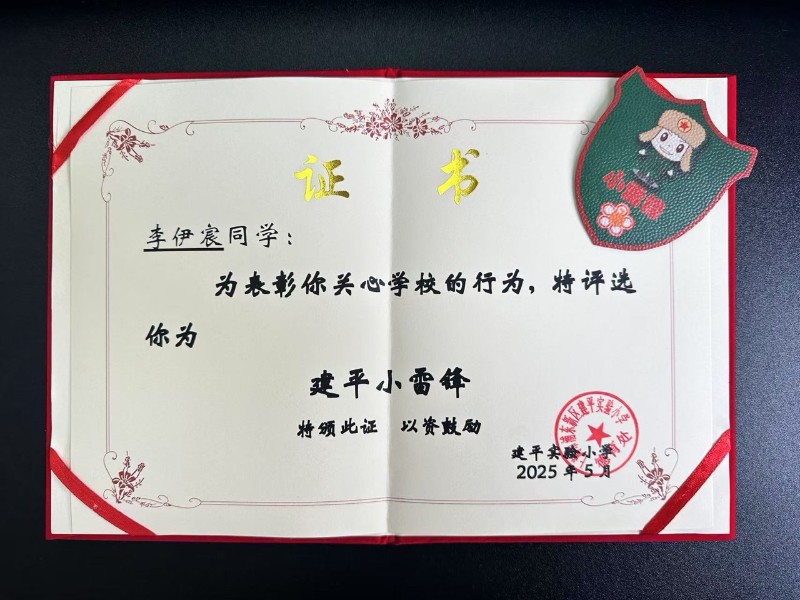 证 书
小雷锋
李伊宸同学：
为表彰你关心学校的行为，特评选
你为
建平小雷锋
特颁此证 以资鼓励
浦东新区建平实验小学
建平实验小学
2025年5月